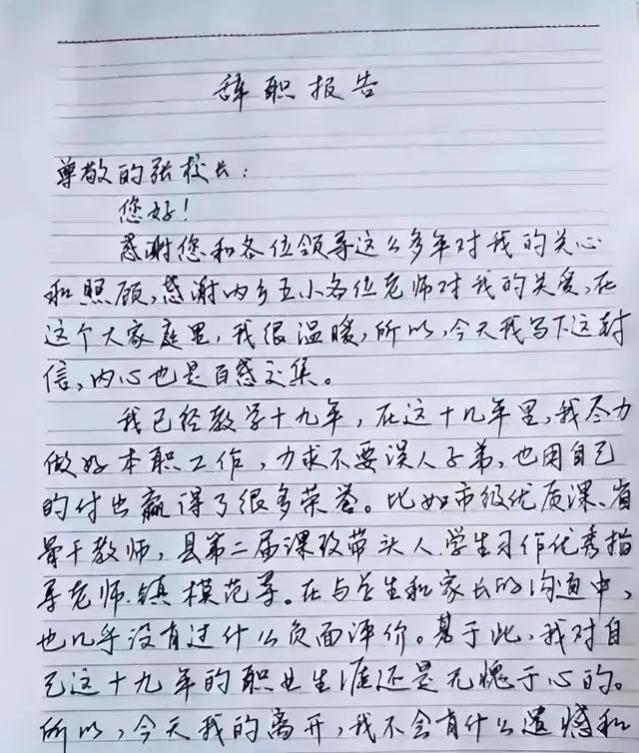 辞职报告
尊敬的张校长：
您好！
感谢您和各位领导这么多年对我的关心
和照顾，感谢内乡五小各位老师对我的关爱，在
这个大家庭里，我很温暖，所以，今天我写下这封
信，内心也是百感交集。
我已经教学十九年，在这十几年里，我尽力
做好本职工作，力求不要误人子弟，也用自己
的付出赢得了很多荣誉。比如市级优质课、省
骨干教师，县第二届课改带头人、学生习作优秀指
导老师、镇模范等。在与学生和家长的沟通中，
也几乎没有过什么负面评价。基于此，我对自
己这十九年的职业生涯还是无愧于心的。
所以，今天我的离开，我不会有什么遗憾和